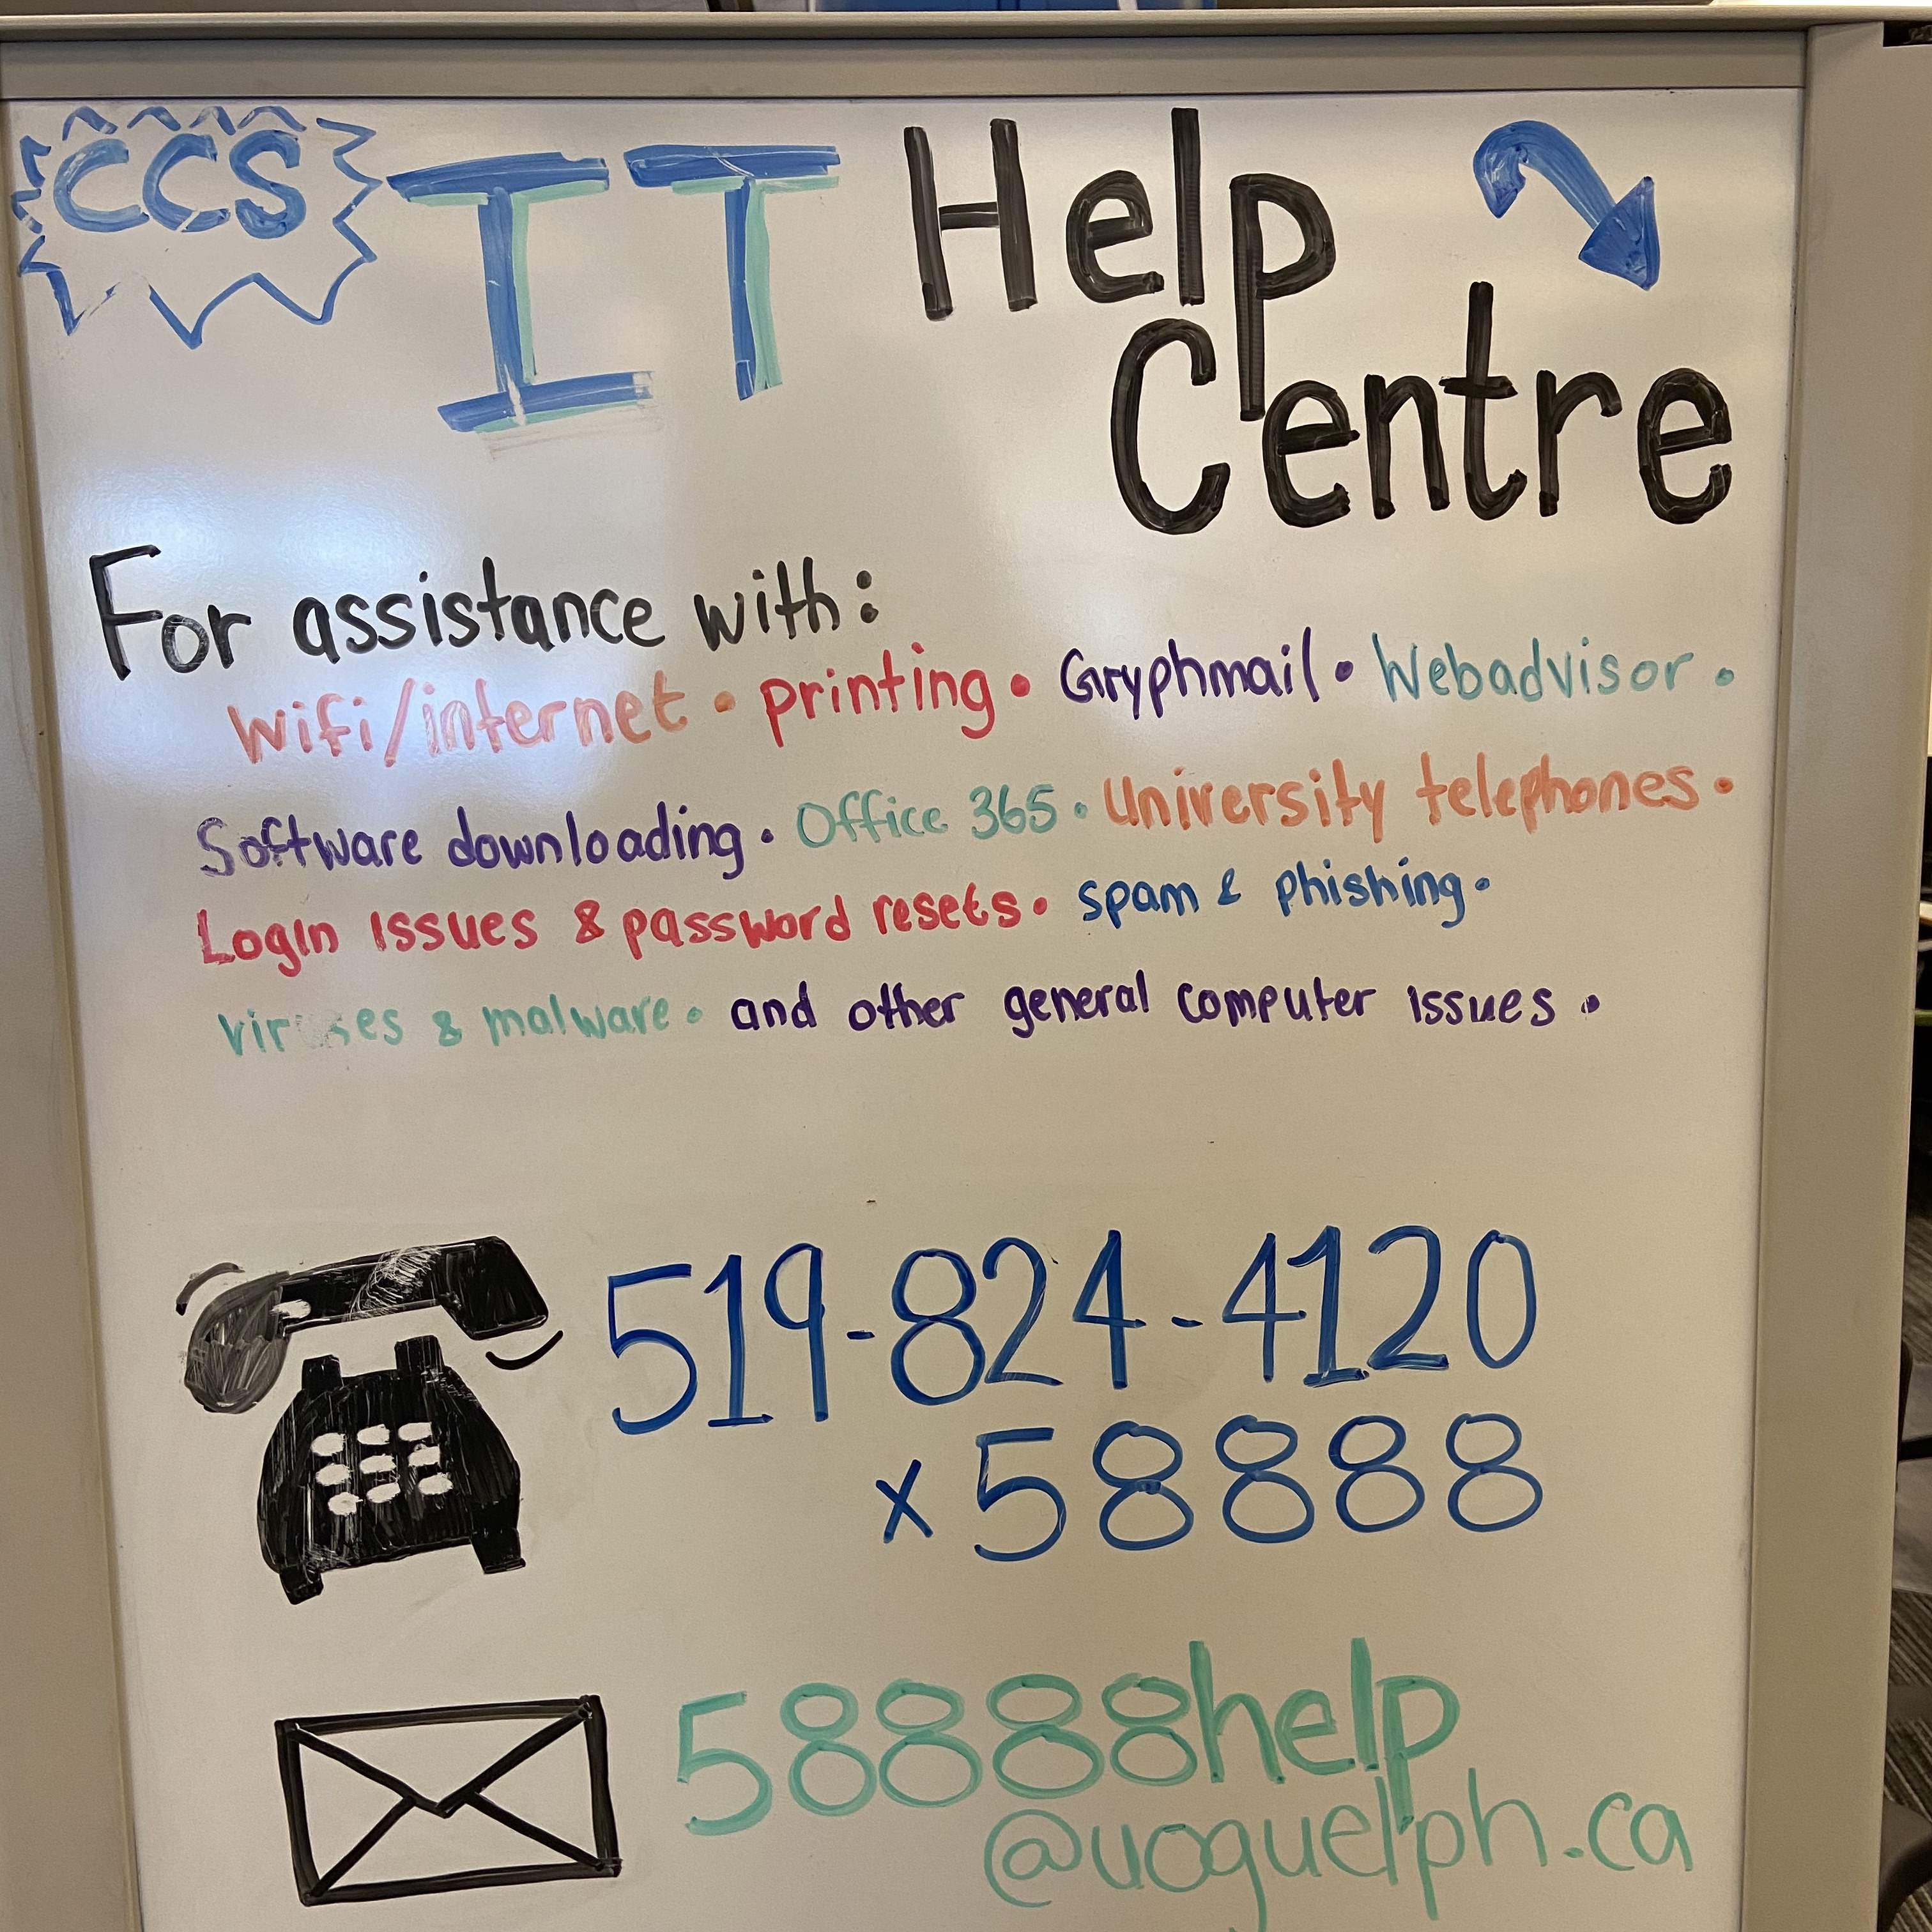 CCS IT Help
Centre
For assistance with:
wifi/internet • printing • Gryphmail • Webadvisor •
Software downloading • Office 365 • University telephones •
Login issues & password resets • spam & phishing •
viruses & malware • and other general computer issues •
519-824-4120
x58888
58888help
@uoguelph.ca